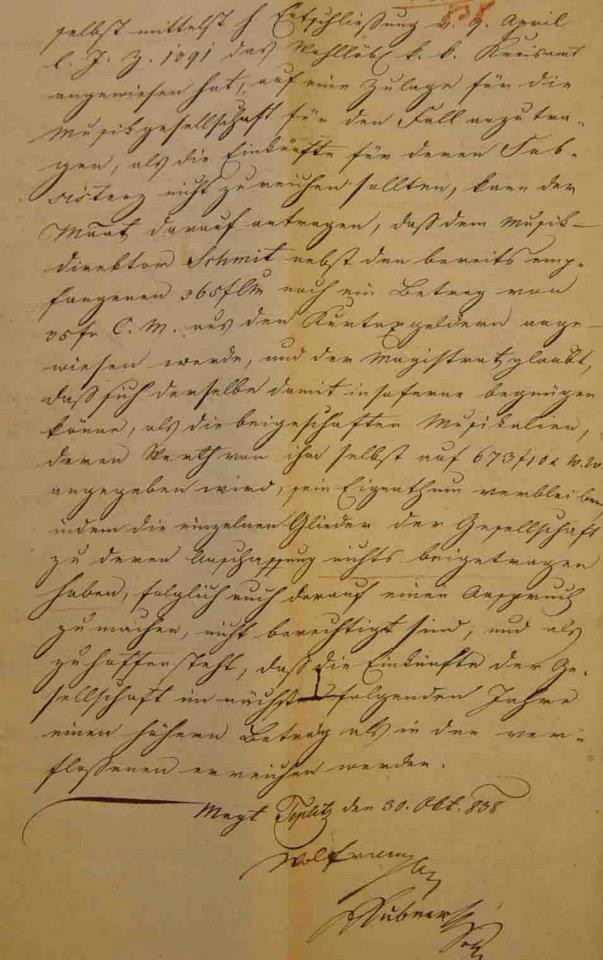 selbst mittelst h. Entschließung v. 9. April
l. J. Z. 1891 das Wohllöbl. k. k. Kreisamt
angewiesen hat, auf eine Zulage für die
Musikgesellschaft für den Fall anzutra-
gen, als die Einkünfte für deren Sub-
sistenz nicht zureichen sollten, kann der
Magt darauf antragen, daß dem Musik-
direktor Schmit nebst den bereits emp-
fangenen 365 f CM noch ein Betrag von
35 fr C. M. aus den Kurtaxgeldern ange-
wiesen werde, und der Magistrat glaubt,
daß sich derselbe damit in soferne begnügen
könne, als die beigeschaften Musikalien,
deren Werth von ihm selbst auf 673 f 10 x W. W
angegeben wird, sein Eigenthum verbleiben
indem die einzelnen Glieder der Gesellschaft
zu deren Anschaffung nichts beigetragen
haben, folglich auch darauf einen Anspruch
zu machen, nicht berechtigt sind, und als
zu hoffen steht, daß die Einkünfte der Ge-
sellschaft im nächstfolgenden Jahre
einen höhern Betrag als in den ver-
flossenen erreichen werden.
Magt Teplitz den 30. Okt. 838
Wolfram